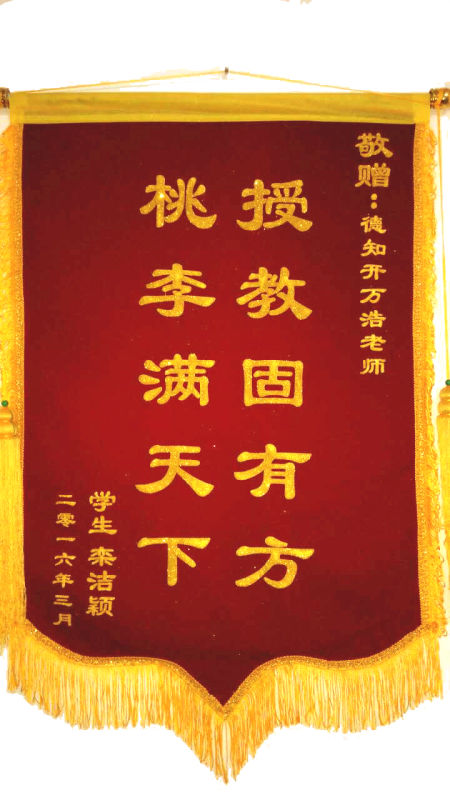 敬赠：德知开万浩老师
授教固有方
桃李满天下
学生 栾洁颖
二零一六年三月